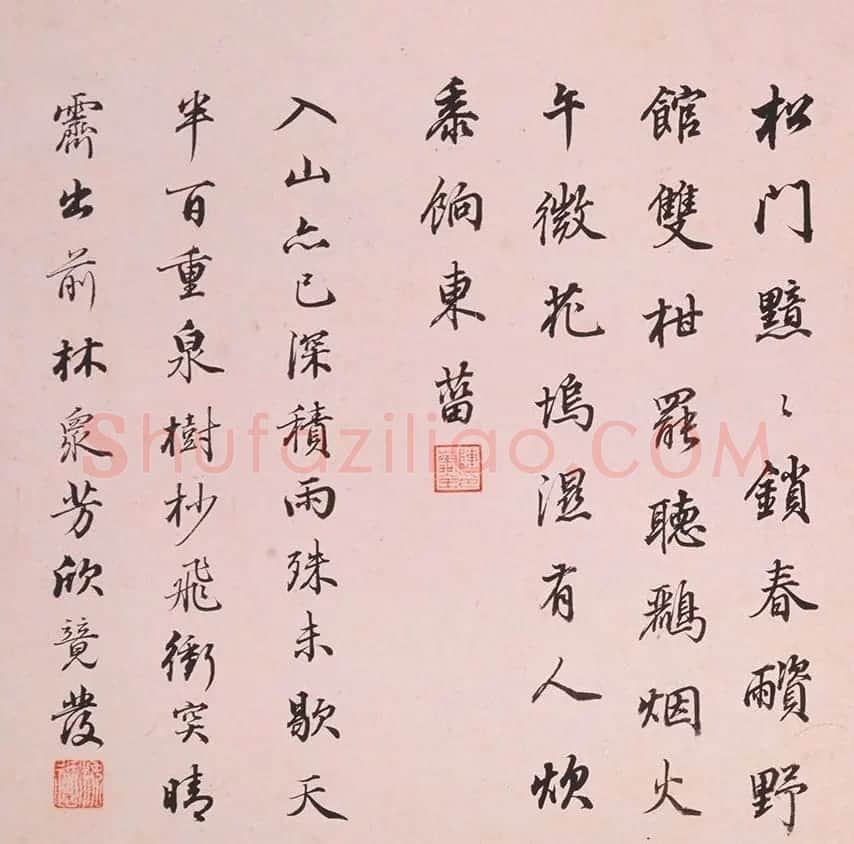 松门黯〻鎖春野
館雙柑罷聽鸝烟火
午微花塢濕有人炊
黍餉東菑
入山亦已深積雨殊未歇天
半百重泉樹杪飛衝突晴
霽出前林衆芳欣競發
Shufaziliao.COM